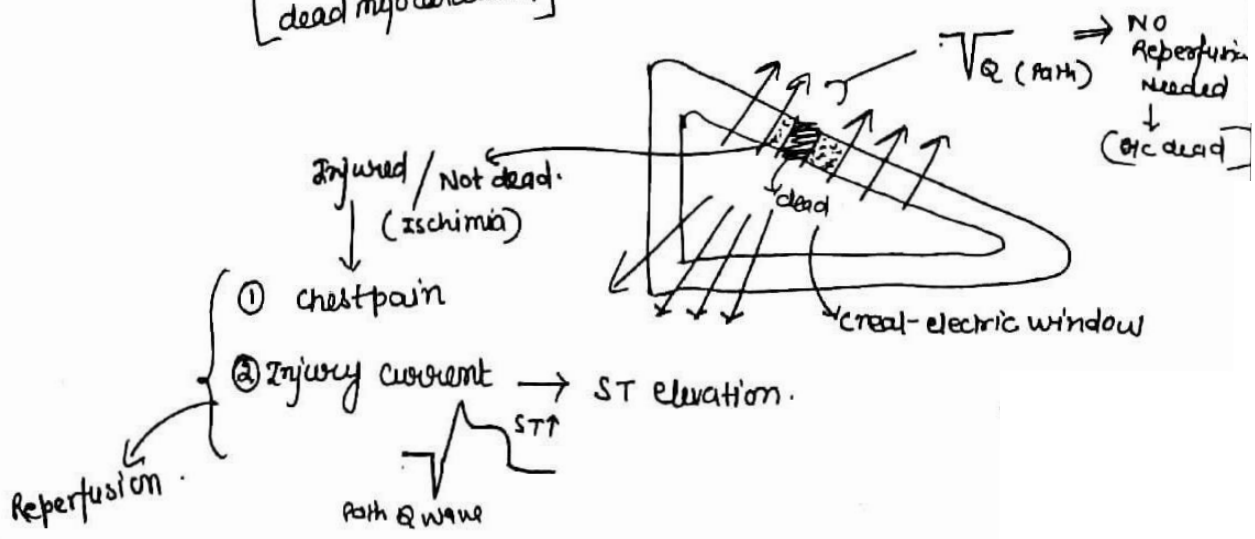 [dead
Q (Path) ⇒ NO
Reperfusion
Needed
↓
(b/c dead)
Injured / Not dead.
(Ischimia)
dead
① chestpain
creat-electric window
② Injury current → ST elevation.
ST↑
Reperfusion.
Path Q wave